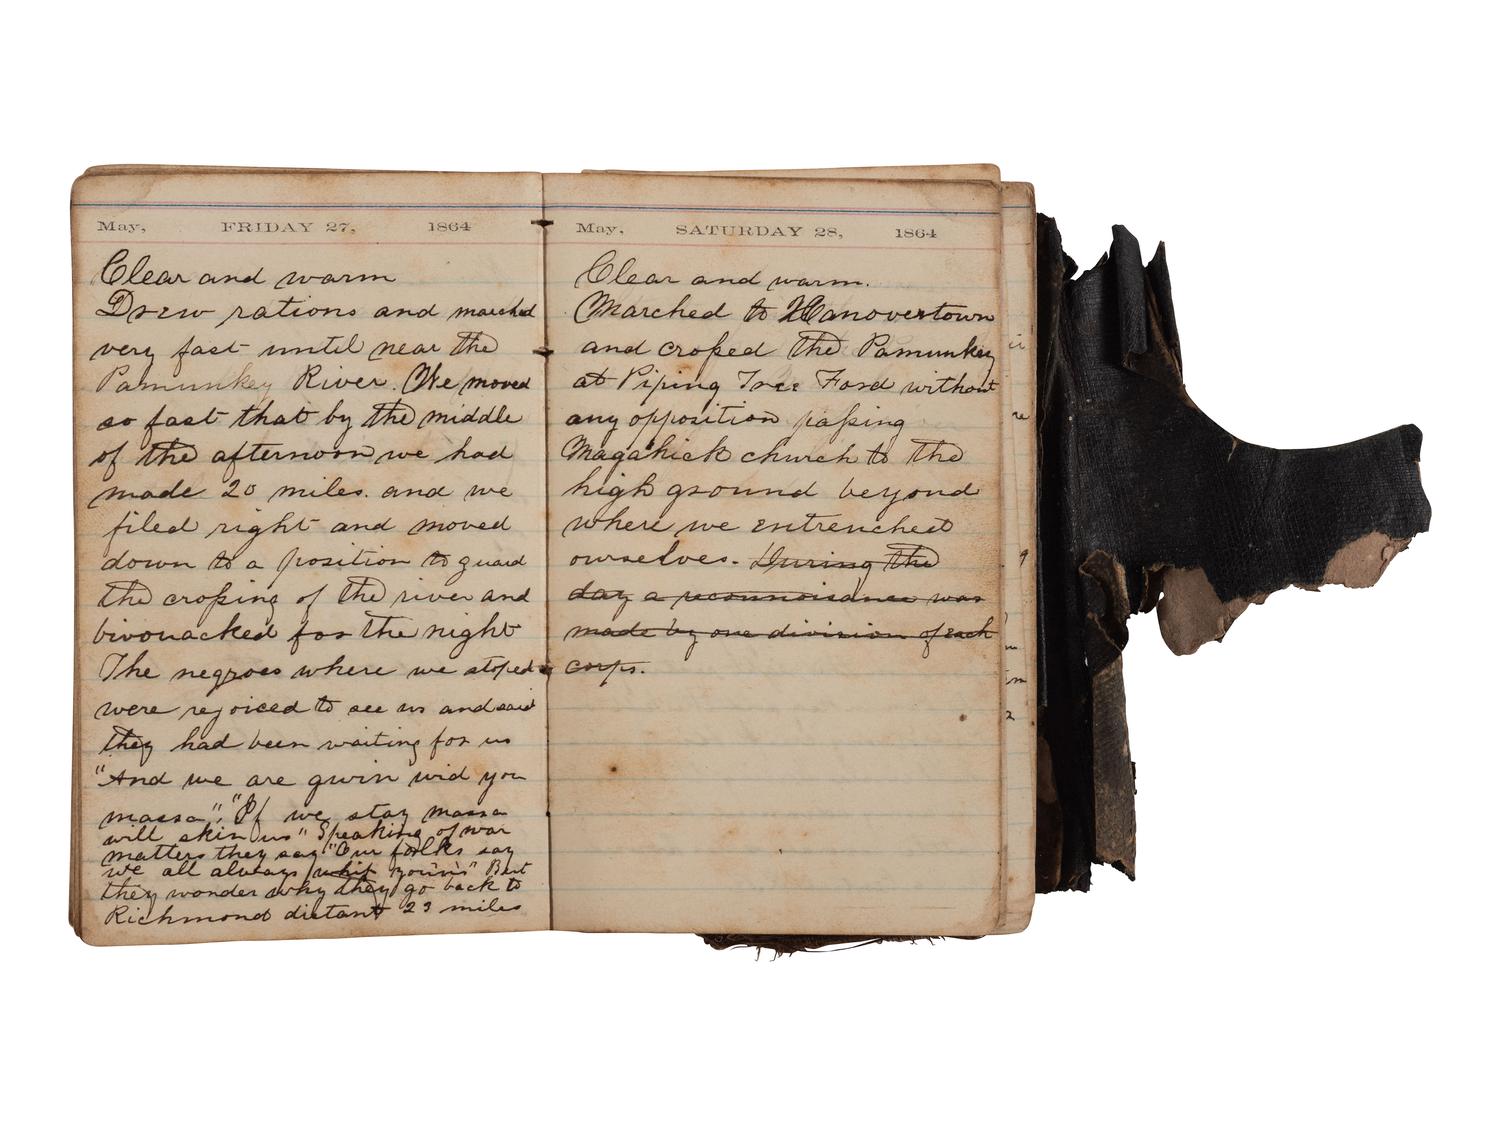 May, FRIDAY 27, 1864
Clear and warm
Drew rations and marched
very fast until near the
Pamunkey River. We moved
so fast that by the middle
of the afternoon we had
made 20 miles. and we
filed right and moved
down to a position to guard
the croßing of the river and
bivouacked for the night
The negroes where we stoped
were rejoiced to see us and said
they had been waiting for us
"And we are gwin wid you
massa"; "If we stay massa
will skin us" Speaking of war
matters they say "Our folks say
we all always whip you'ns" But
they wonder why they go back to
Richmond distant 23 miles
May, SATURDAY 28, 1864
Clear and warm.
Marched to Hanovertown
and croßed the Pamunkey
at Piping Tree Ford without
any opposition paßing
Magahick church to the
high ground beyond
where we entrenched
ourselves. During the
day a reconnoisance was
made by one division of each
corps.